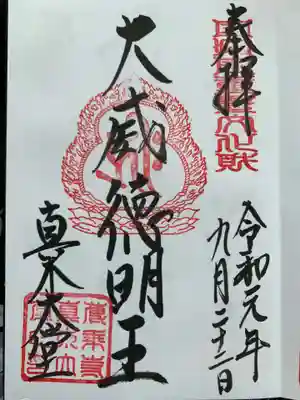 奉拝
令和元年
九月二十二日
大威徳明王
真木大堂